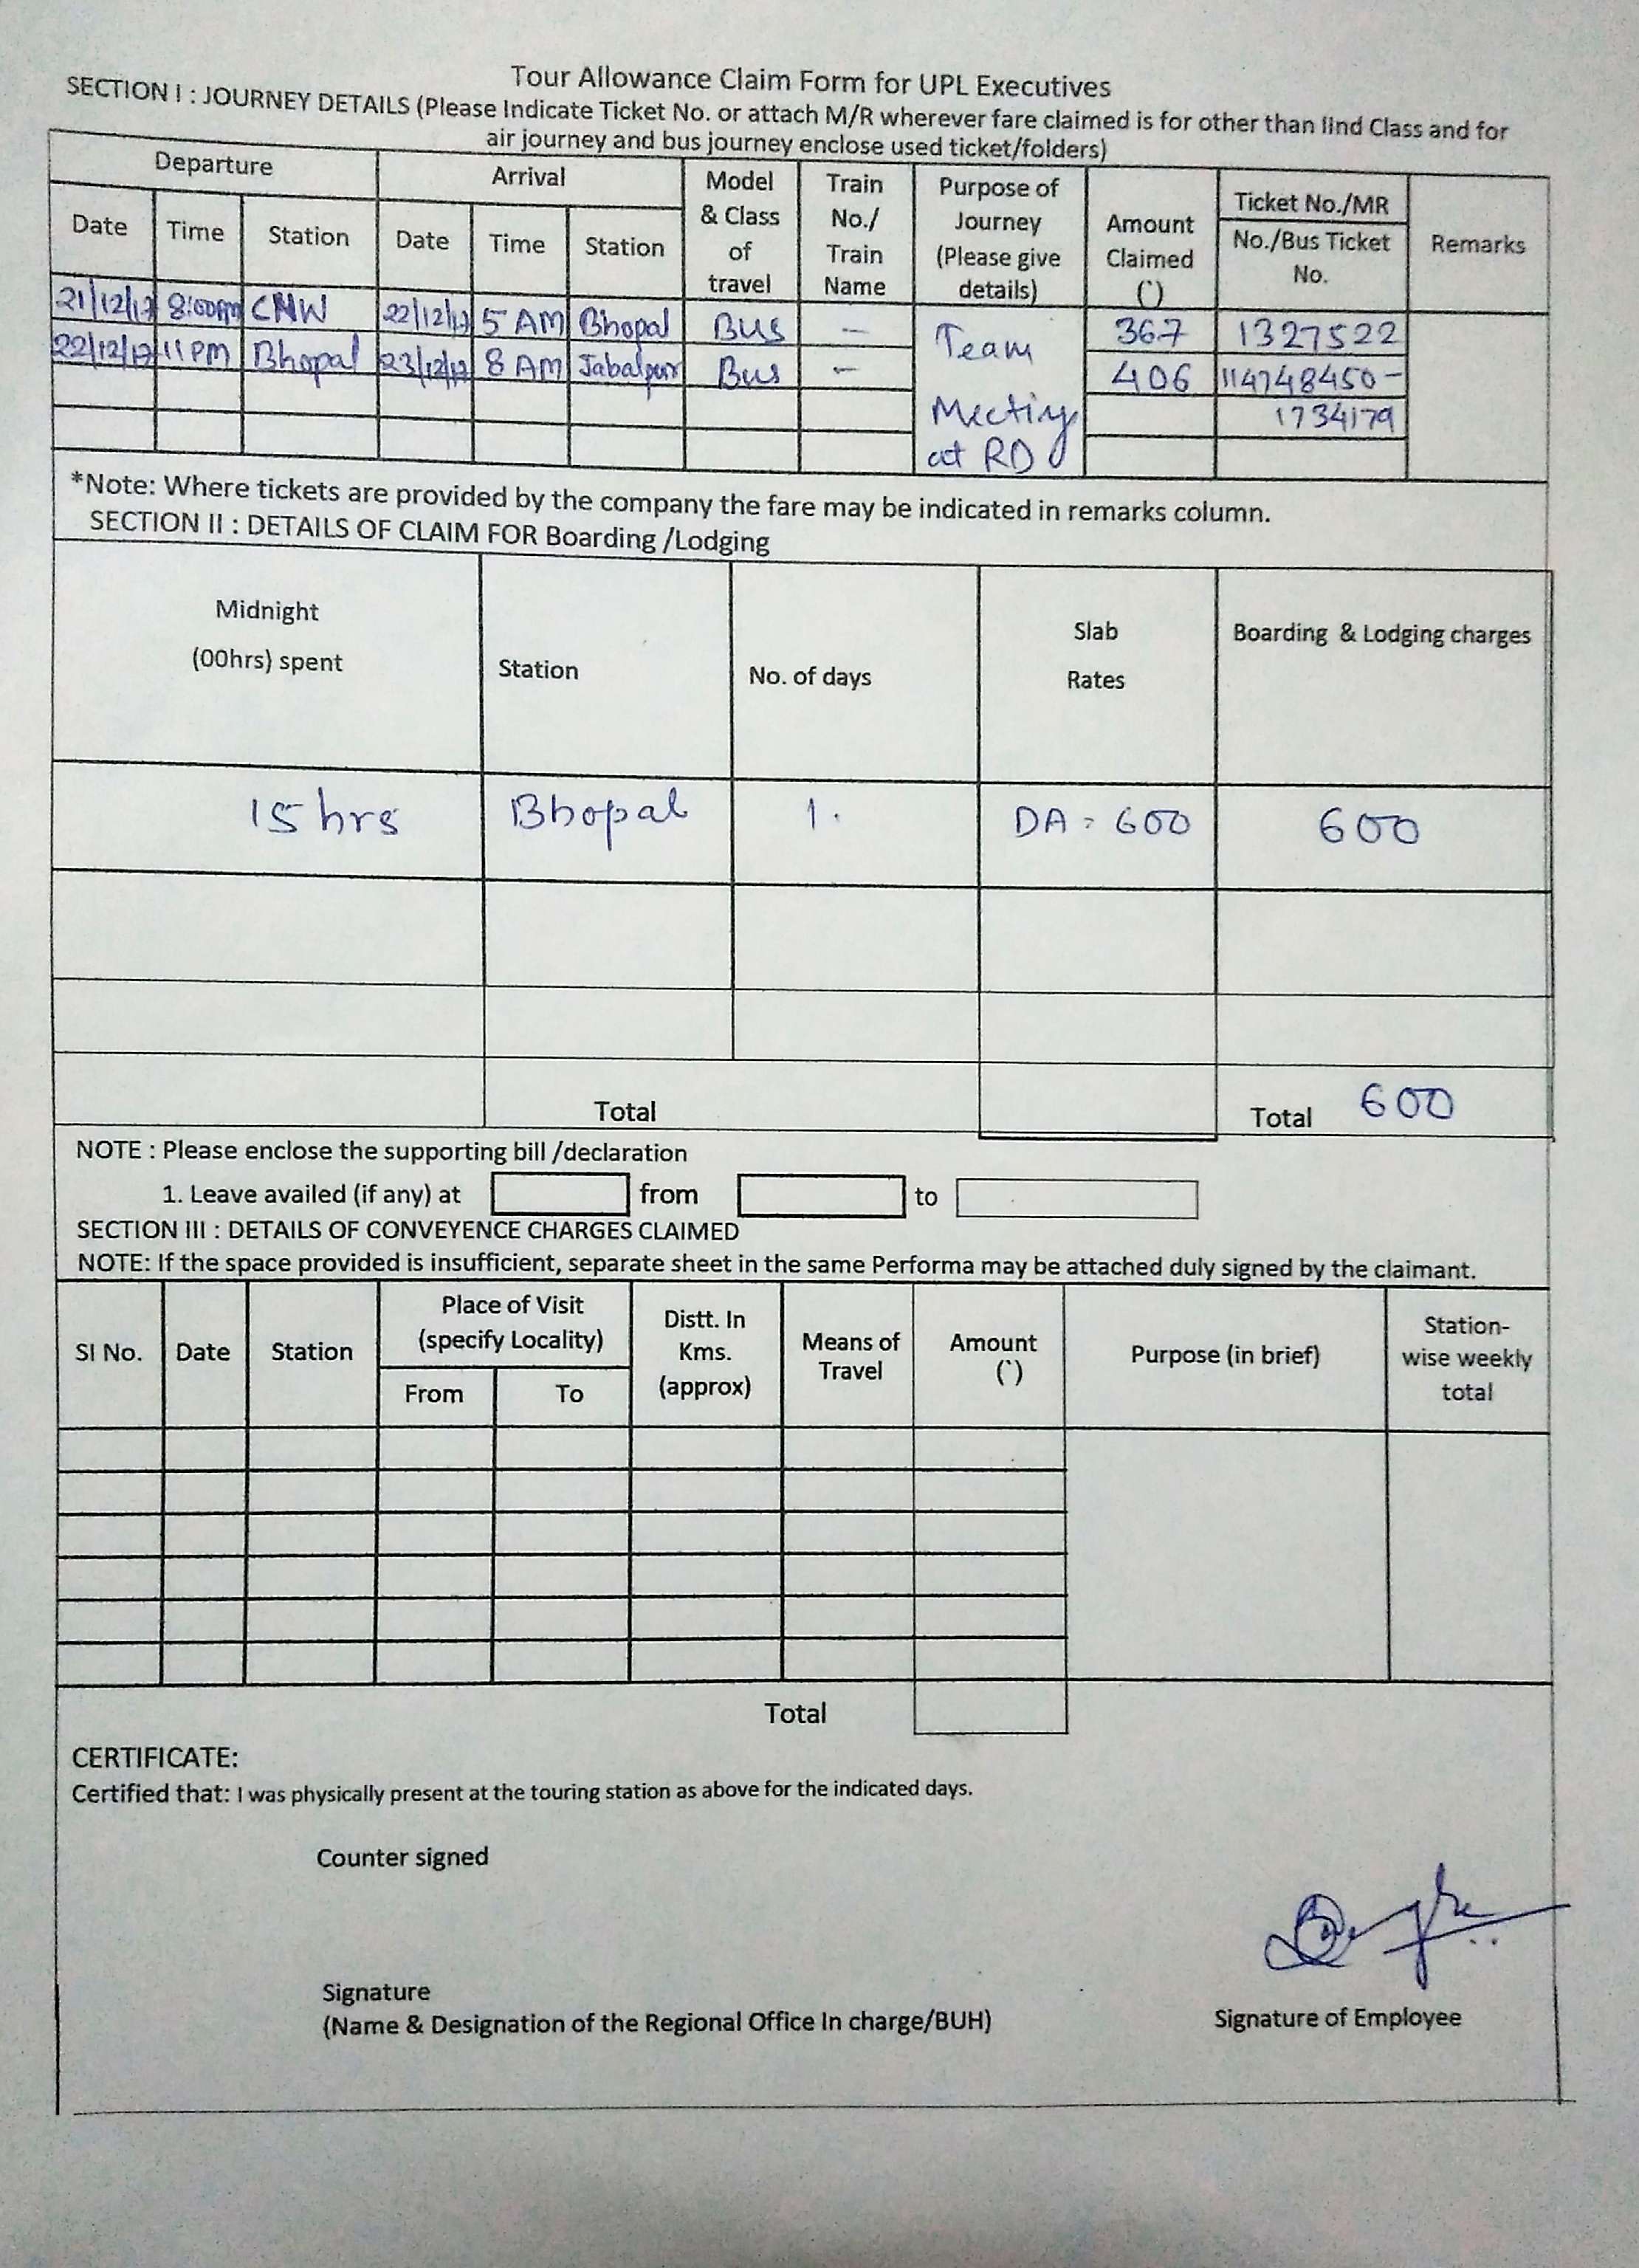 Tour Allowance Claim Form for UPL Executives
SECTION I : JOURNEY DETAILS (Please Indicate Ticket No. or attach M/R wherever fare claimed is for other than IInd Class and for
air journey and bus journey enclose used ticket/folders)
Departure Arrival Model & Class of travel Train No./ Train Name Purpose of Journey (Please give details) Amount Claimed (`) Ticket No./MR No./Bus Ticket No. Remarks
Date Time Station Date Time Station
21/12/17 8:00pm CNW 22/12/17 5 AM Bhopal Bus — Team 367 1327522
22/12/17 11 PM Bhopal 23/12/17 8 AM Jabalpur Bus — 406 114748450-
Meeting 1734179
at RO
*Note: Where tickets are provided by the company the fare may be indicated in remarks column.
SECTION II : DETAILS OF CLAIM FOR Boarding /Lodging
Midnight (00hrs) spent Station No. of days Slab Rates Boarding & Lodging charges
15 hrs Bhopal 1. DA = 600 600
Total Total 600
NOTE : Please enclose the supporting bill /declaration
1. Leave availed (if any) at from to
SECTION III : DETAILS OF CONVEYENCE CHARGES CLAIMED
NOTE: If the space provided is insufficient, separate sheet in the same Performa may be attached duly signed by the claimant.
SI No. Date Station Place of Visit (specify Locality) Distt. In Kms. (approx) Means of Travel Amount (`) Purpose (in brief) Station-wise weekly total
From To
Total
CERTIFICATE:
Certified that: I was physically present at the touring station as above for the indicated days.
Counter signed
Signature
(Name & Designation of the Regional Office In charge/BUH) Signature of Employee